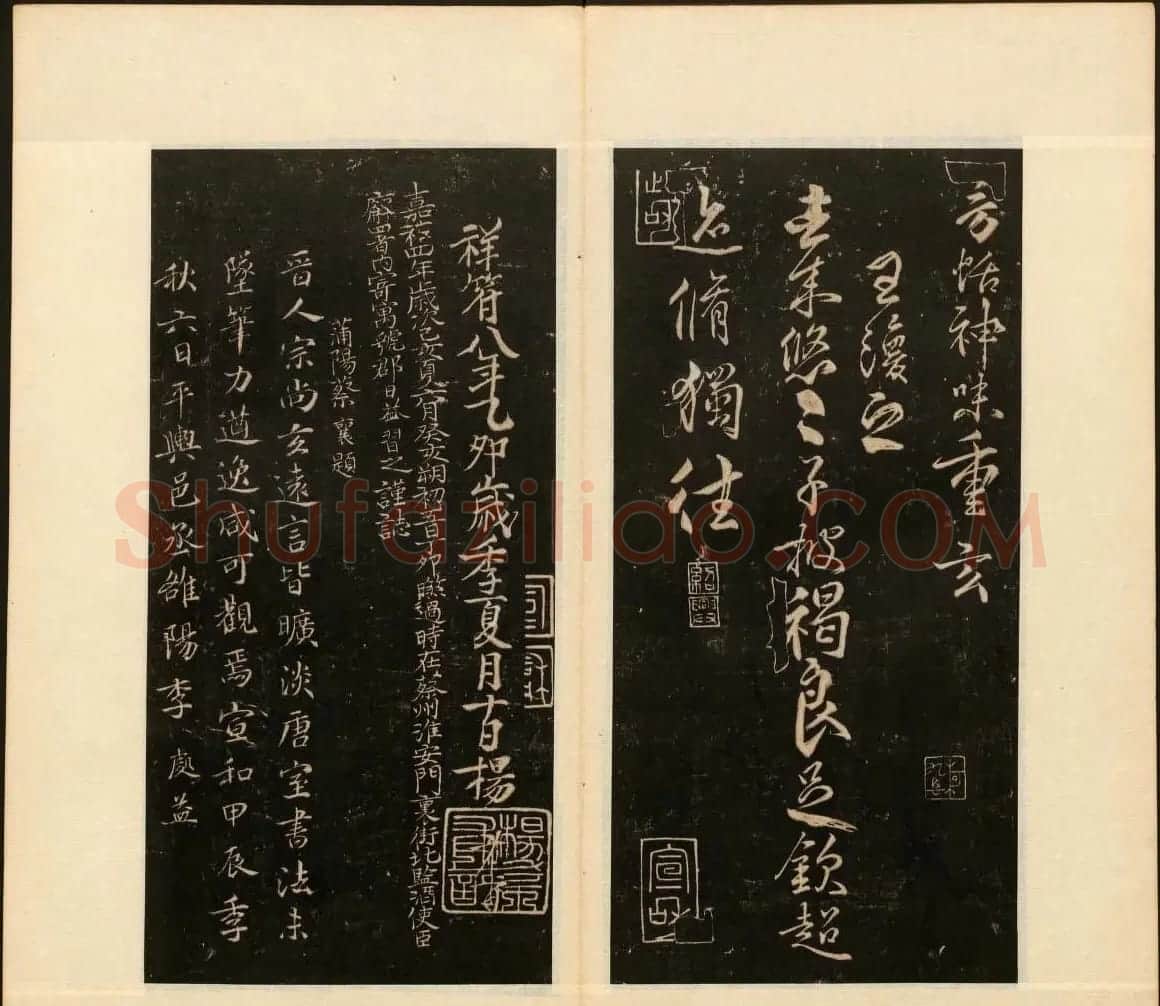 方恬神味重玄
王渙之
去来悠〻子披褐良足欽超
迹脩獨往
紹興
祥符八年乙卯歲季夏月 楊
嘉祐四年歲次 月癸亥朔初 過時在蔡州淮安門裏街北監酒使臣
廨署內寄寓號郡日益習之謹誌
蒲陽蔡襄題
晉人宗尚玄遠言皆曠淡唐室書法未
墜筆力遒逸咸可觀焉宣和甲辰季
秋六日平輿邑丞雒陽李處益
Shufaziliao.COM